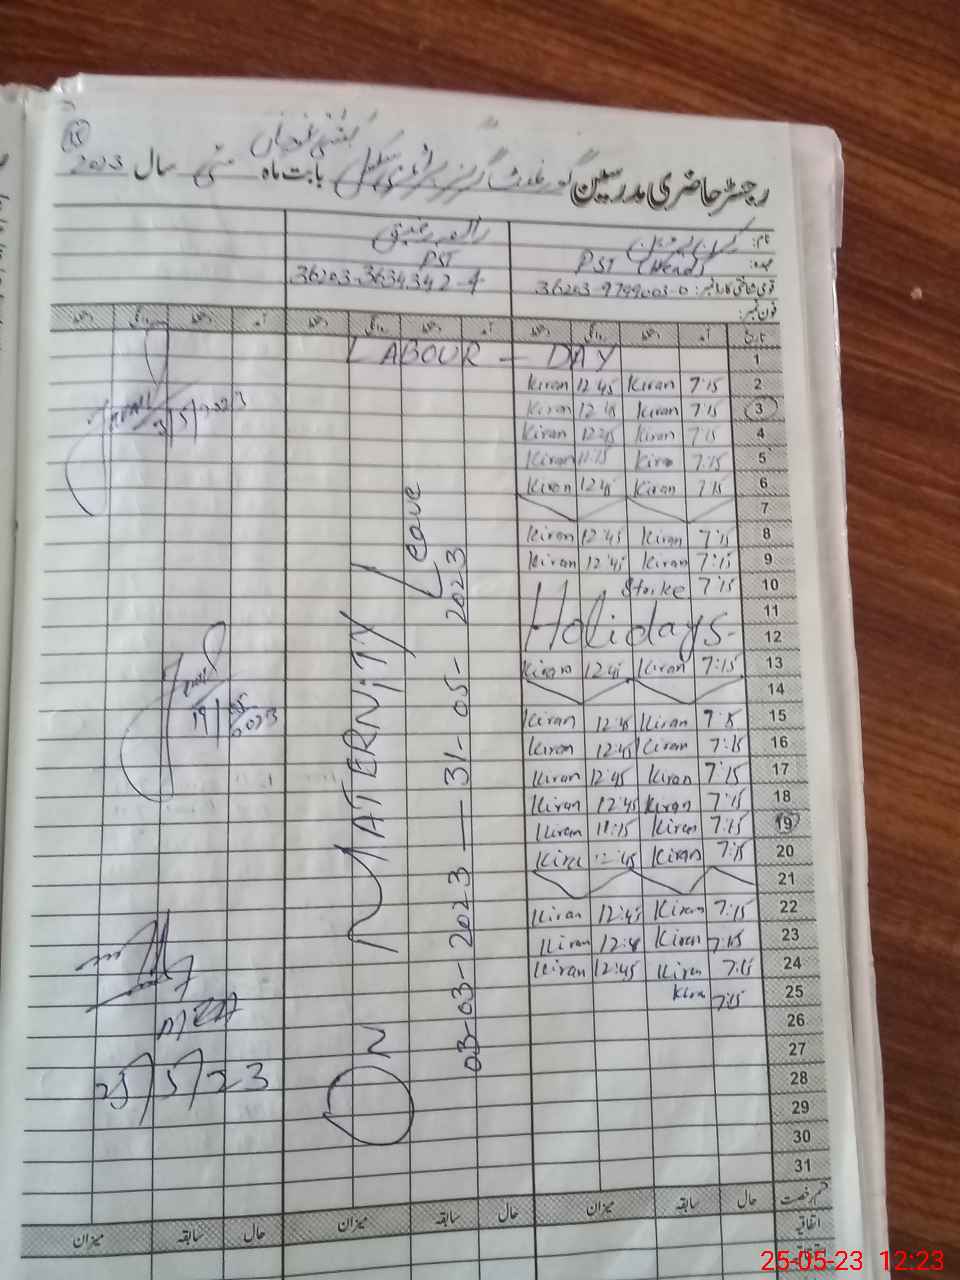 15
رجسٹر حاضری مدرسین گورنمنٹ گرلز پرائمری سکول بابت ماہ مئی سال 2023
نام:
عہدہ: PST (Head) PST
قومی شناختی کارڈ نمبر: 36203-9799003-0 36203-3634342-4
فون نمبر:
تاریخ آمد دستخط روانگی دستخط آمد دستخط روانگی دستخط آمد دستخط روانگی دستخط
1 LABOUR - DAY
2 7:15 Kiran 12:45 Kiran
3 7:15 Kiran 12:45 Kiran
4 7:15 Kiran 12:45 Kiran
5 7:15 Kiran 11:15 Kiran
6 7:15 Kiran 12:45 Kiran
7
8 7:15 Kiran 12:45 Kiran
9 7:15 Kiran 12:45 Kiran
10 7:15 Strike
11 Holidays-
12
13 7:15 Kiran 12:45 Kiran
14
15 7:15 Kiran 12:45 Kiran
16 7:15 Kiran 12:45 Kiran
17 7:15 Kiran 12:45 Kiran
18 7:15 Kiran 12:45 Kiran
19 7:15 Kiran 11:15 Kiran
20 7:15 Kiran 12:45 Kiran
21
22 7:15 Kiran 12:45 Kiran
23 7:15 Kiran 12:45 Kiran
24 7:15 Kiran 12:45 Kiran
25 7:15 Kiran
26
27
28
29
30
31
ON MATERNITY Leave
03-03-2023 — 31-05-2023
3/5/2023
19/05/2023
25/5/23
قسم رخصت حال سابقہ میزان حال سابقہ میزان حال سابقہ میزان
اتفاقیہ
25-05-23 12:23